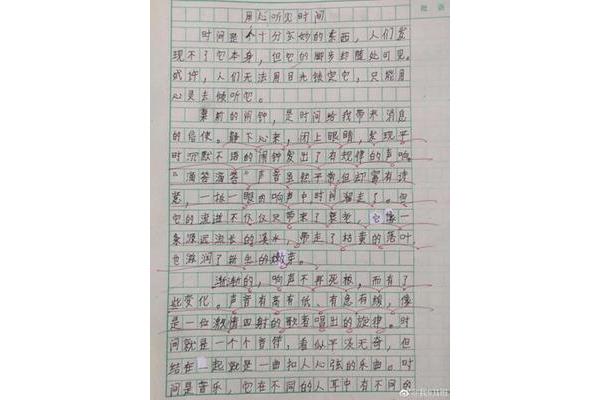 批语
用心听见时间
时间是个十分玄妙的东西，人们发
现不了它本身，但它的脚步却随处可见。
或许，人们无法用目光锁定它，只能用
心灵去倾听它。
桌前的闹钟，是时间给我带来消息
的信使。静下心来，闭上眼睛，发现平
时沉默不语的闹钟发出了有规律的声响。
“滴答滴答”声音虽然平常但却富有诗
意，一板一眼的响声中时间溜走了。但
它的流逝不仅仅只带来了衰老，它像一
条源远流长的溪水，带走了枯黄的落叶
也滋润了新生的嫩芽。
渐渐的，响声不再死板，而有了
些变化。声音有高有低、有急有缓，像
是一位激情四射的歌者唱出的旋律。时
间就是一个个音律，看似平淡无奇，但
结在一起就是一曲扣人心弦的乐曲。时
间是音乐，它在不同的人耳中有不同的